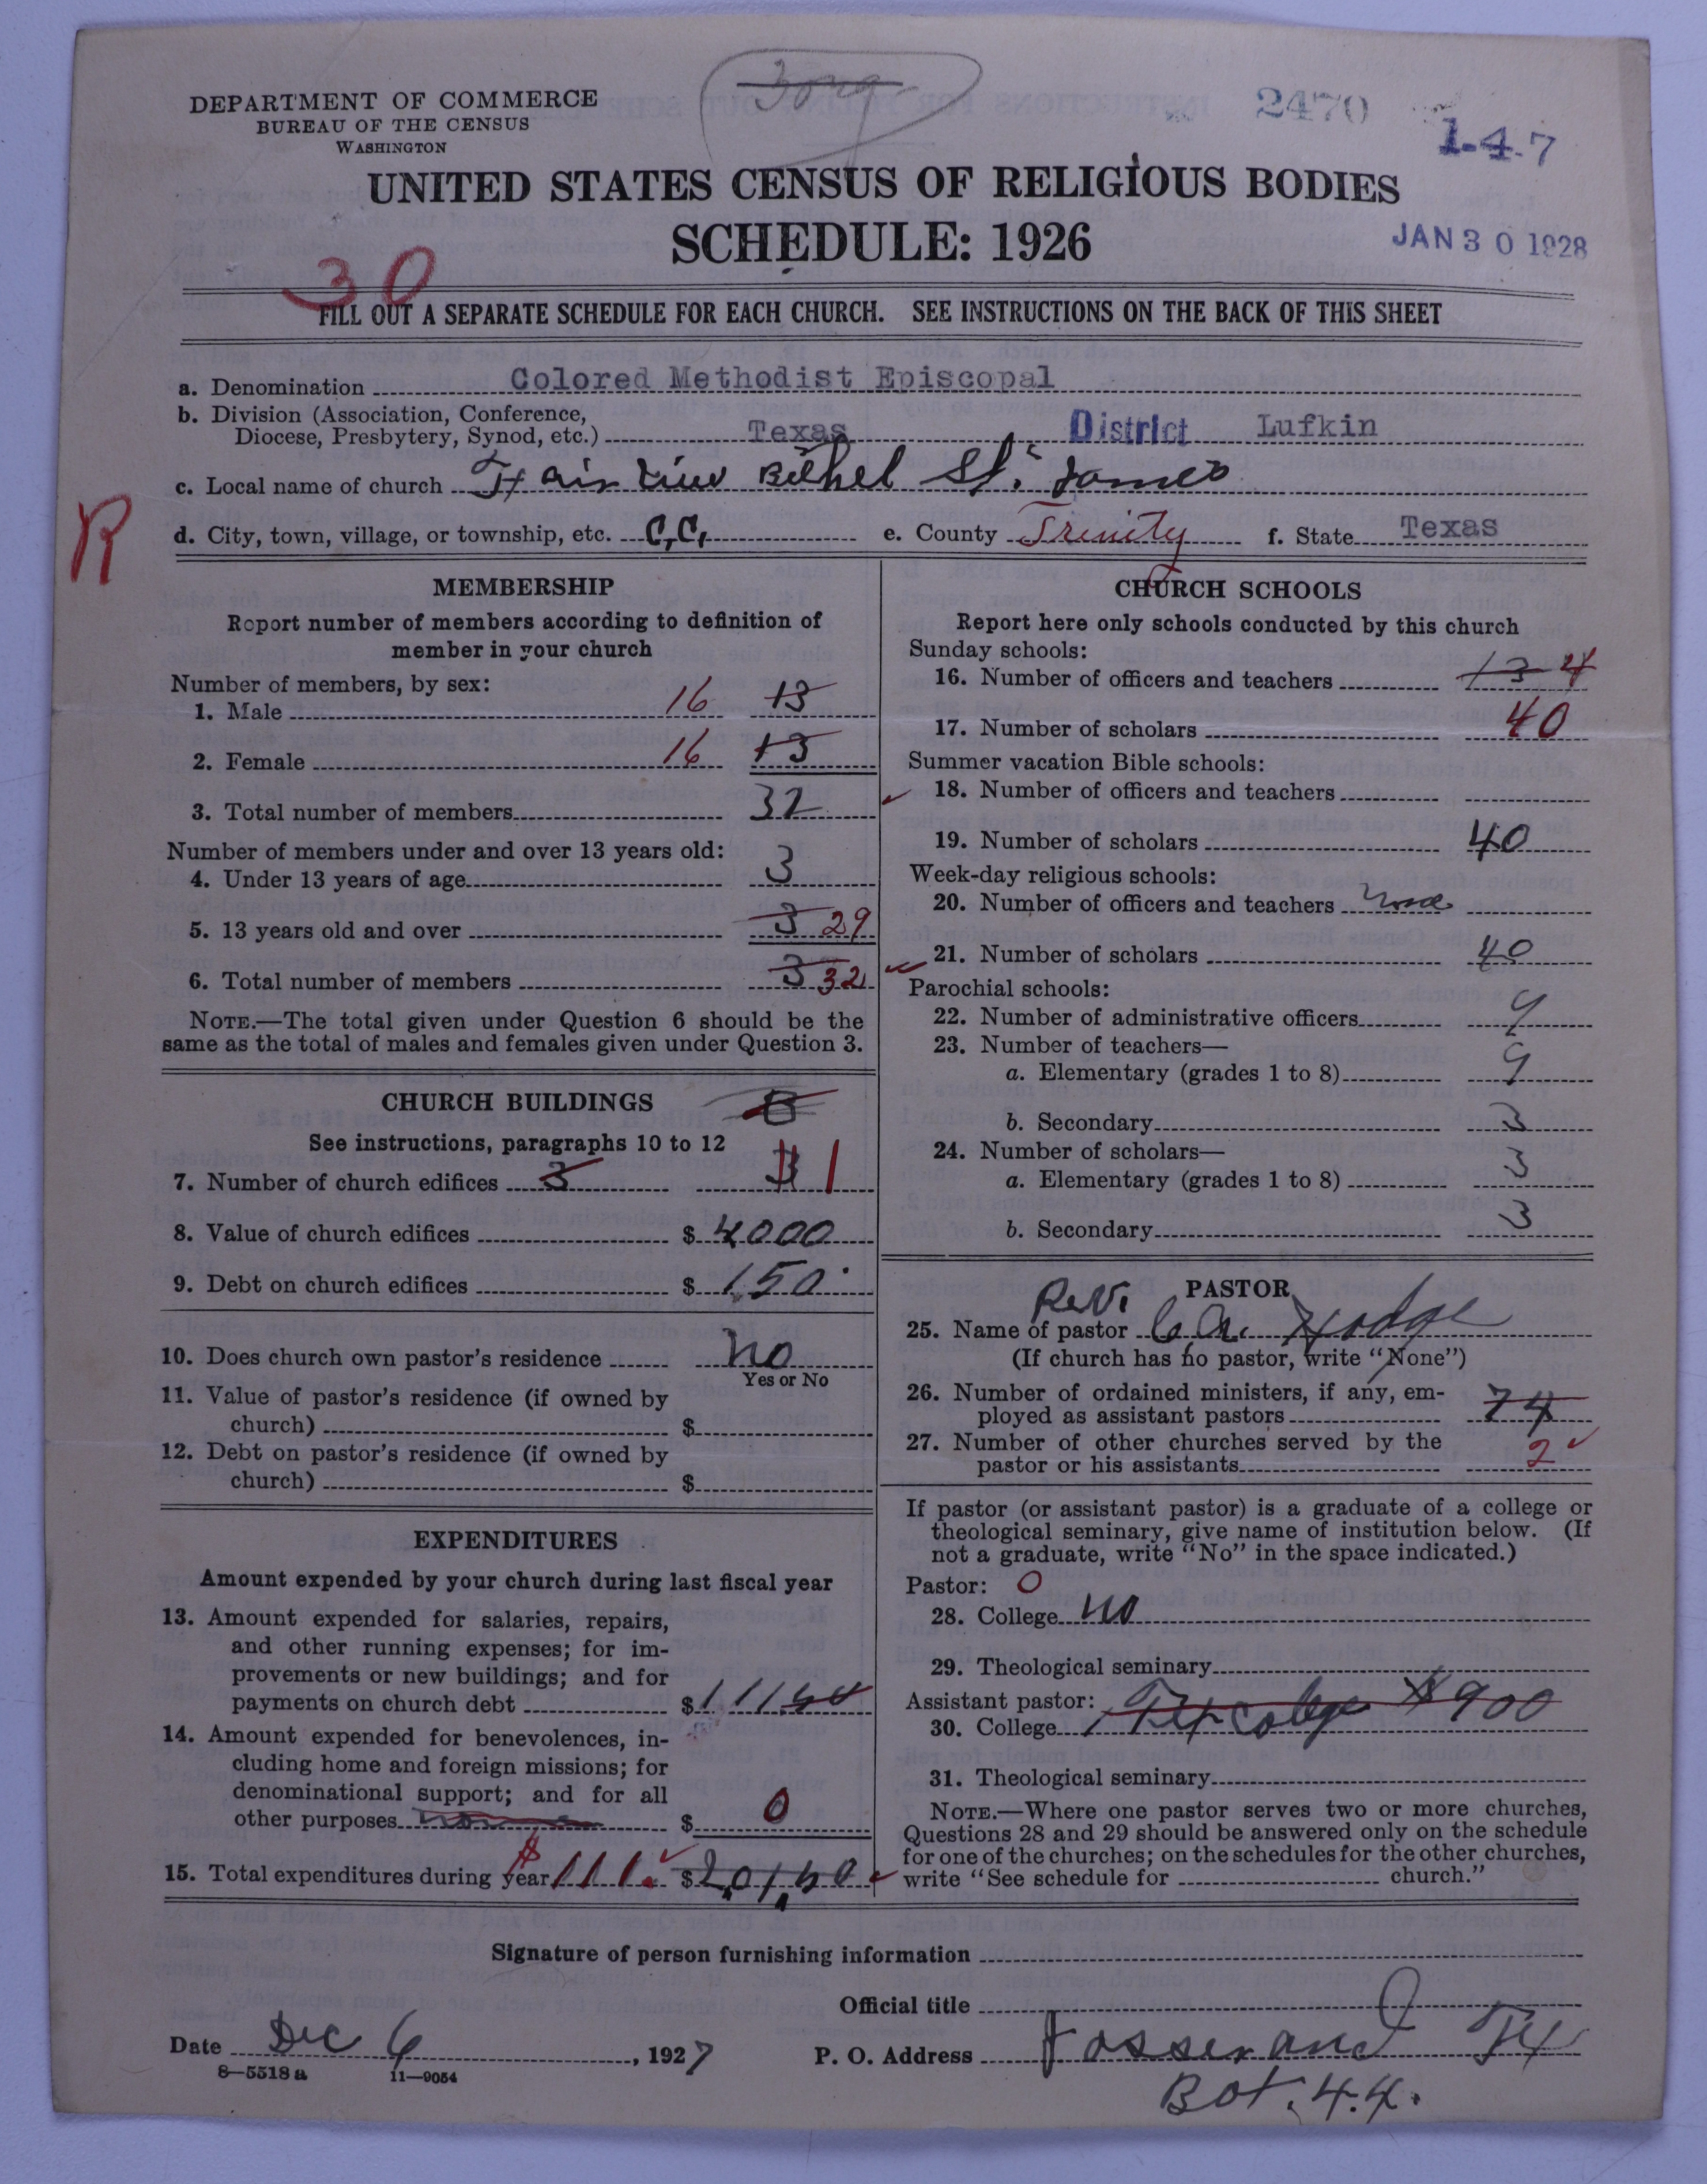 DEPARTMENT OF COMMERCE
BUREAU OF THE CENSUS
WASHINGTON
2470
1-4-7
UNITED STATES CENSUS OF RELIGIOUS BODIES
SCHEDULE: 1926
JAN 30 1928
30
FILL OUT A SEPARATE SCHEDULE FOR EACH CHURCH. SEE INSTRUCTIONS ON THE BACK OF THIS SHEET
a. Denomination Colored Methodist Episcopal
b. Division (Association, Conference,
Diocese, Presbytery, Synod, etc.) Texas District Lufkin
c. Local name of church Fair View Bethel St. James
R
d. City, town, village, or township, etc. C.C. e. County Trinity f. State Texas
MEMBERSHIP
Report number of members according to definition of
member in your church
Number of members, by sex:
1. Male 16 13
2. Female 16 13
3. Total number of members 32
Number of members under and over 13 years old:
4. Under 13 years of age 3
5. 13 years old and over 3 29
6. Total number of members 3 32
NOTE.—The total given under Question 6 should be the
same as the total of males and females given under Question 3.
CHURCH BUILDINGS
See instructions, paragraphs 10 to 12
7. Number of church edifices 3 3 1
8. Value of church edifices $ 4000
9. Debt on church edifices $ 150
10. Does church own pastor's residence No
Yes or No
11. Value of pastor's residence (if owned by
church) $
12. Debt on pastor's residence (if owned by
church) $
EXPENDITURES
Amount expended by your church during last fiscal year
13. Amount expended for salaries, repairs,
and other running expenses; for im-
provements or new buildings; and for
payments on church debt $ 111
14. Amount expended for benevolences, in-
cluding home and foreign missions; for
denominational support; and for all
other purposes $ 0
15. Total expenditures during year $ 111. $
CHURCH SCHOOLS
Report here only schools conducted by this church
Sunday schools:
16. Number of officers and teachers 13 4
17. Number of scholars 40
Summer vacation Bible schools:
18. Number of officers and teachers
19. Number of scholars 40
Week-day religious schools:
20. Number of officers and teachers none
21. Number of scholars 40
Parochial schools:
22. Number of administrative officers 9
23. Number of teachers—
a. Elementary (grades 1 to 8) 9
b. Secondary 3
24. Number of scholars—
a. Elementary (grades 1 to 8) 3
b. Secondary 3
PASTOR
25. Name of pastor Rev. Hodge
(If church has no pastor, write "None")
26. Number of ordained ministers, if any, em-
ployed as assistant pastors 74
27. Number of other churches served by the
pastor or his assistants 2
If pastor (or assistant pastor) is a graduate of a college or
theological seminary, give name of institution below. (If
not a graduate, write "No" in the space indicated.)
Pastor: 0
28. College No
29. Theological seminary
Assistant pastor:
30. College Tex College $900
31. Theological seminary
NOTE.—Where one pastor serves two or more churches,
Questions 28 and 29 should be answered only on the schedule
for one of the churches; on the schedules for the other churches,
write "See schedule for church."
Signature of person furnishing information
Official title
Date Dec 6, 1927
P. O. Address Josserand Tex
Box. 44.
8—5518 a 11—9054